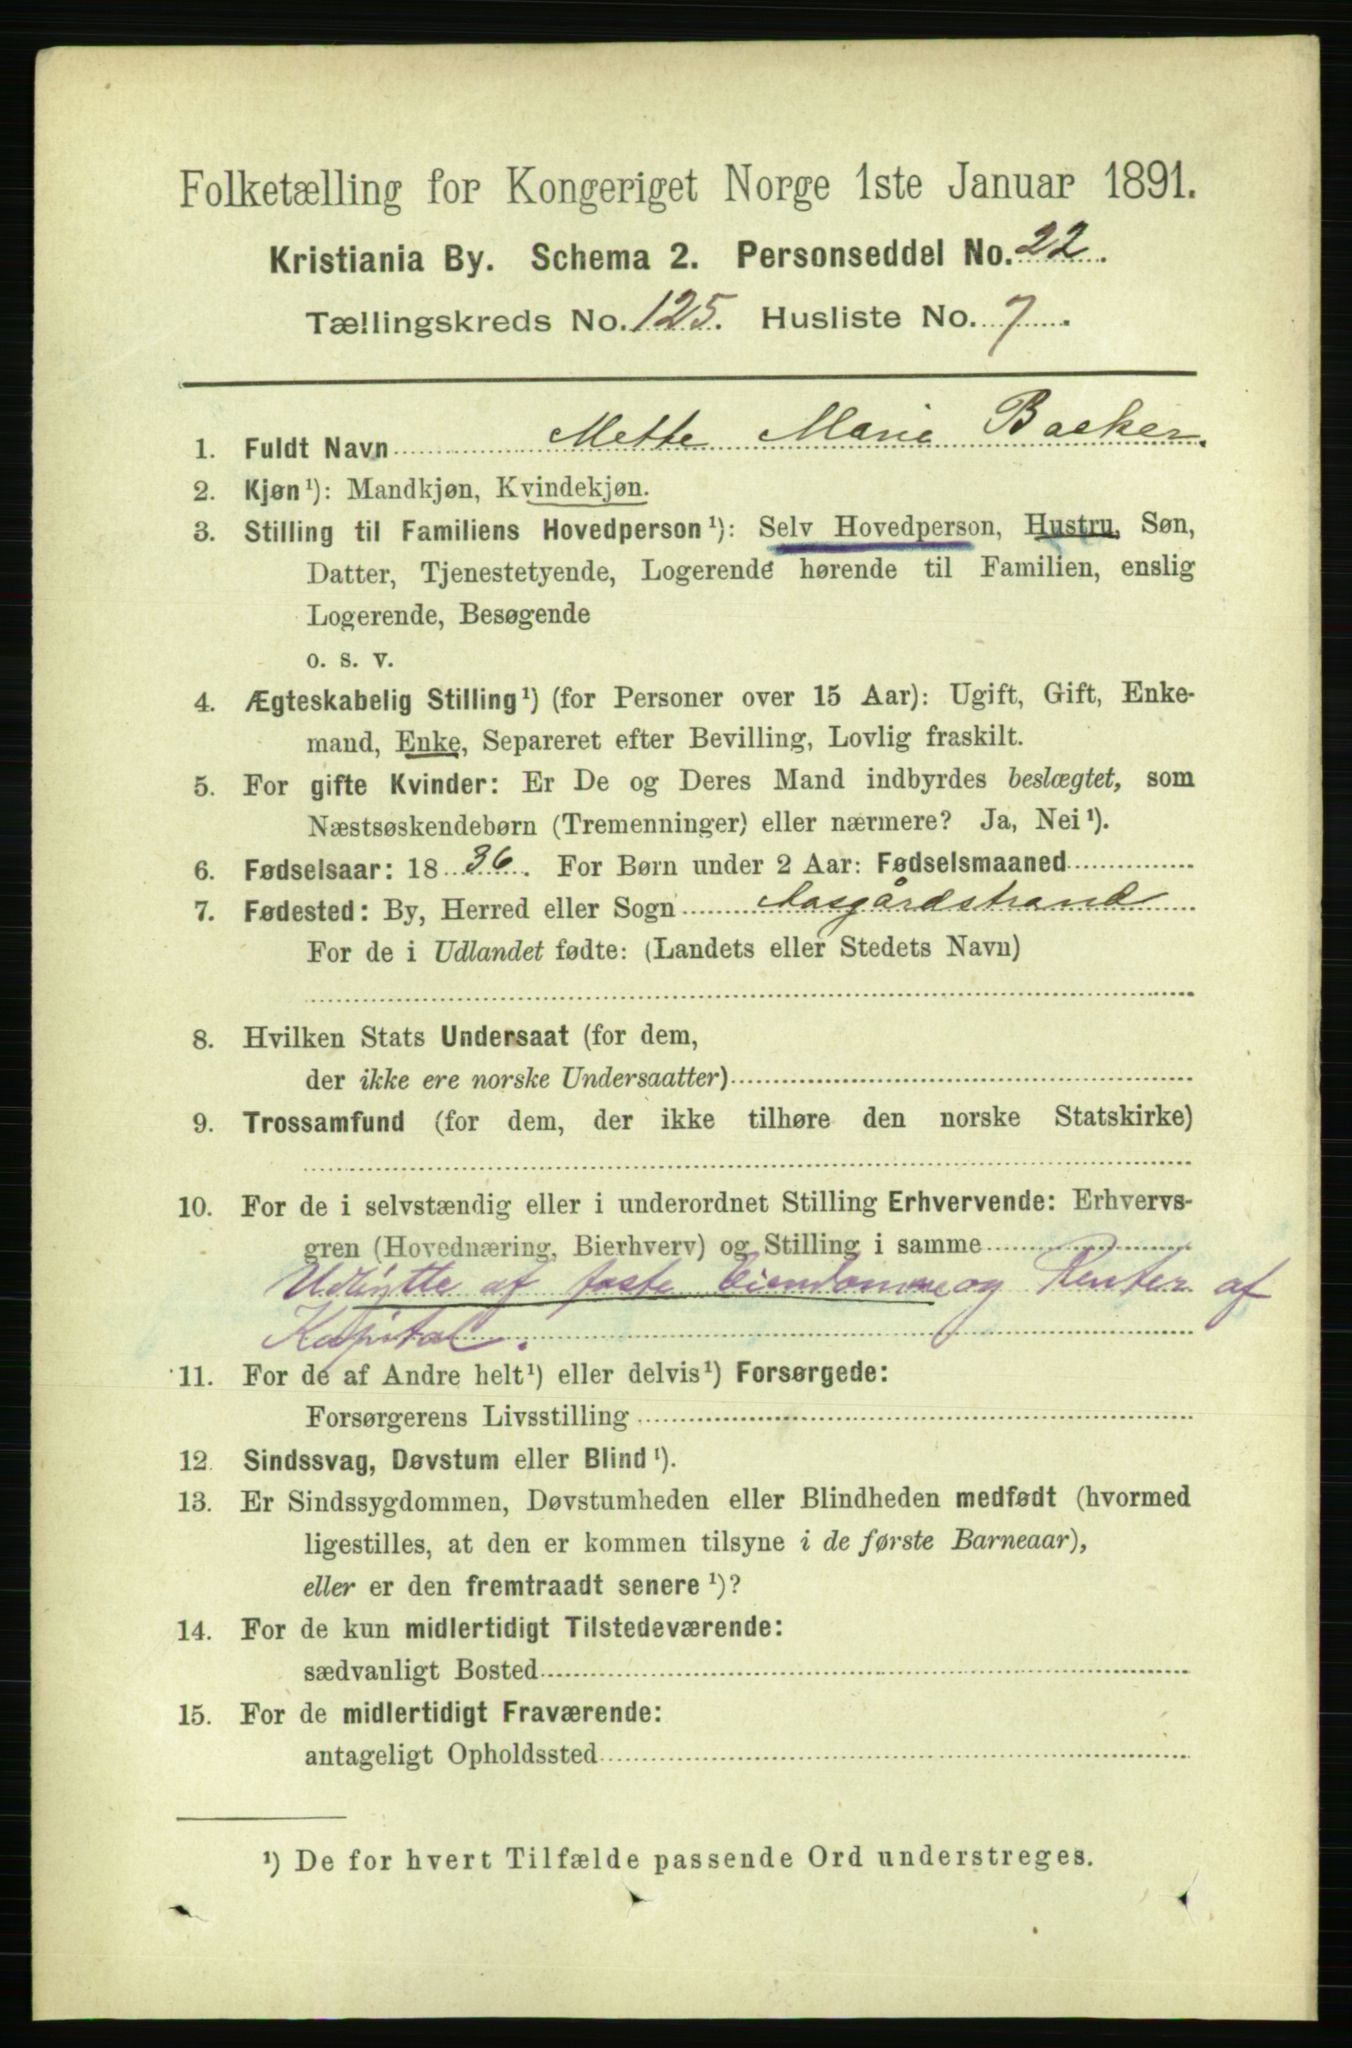 Folketælling for Kongeriget Norge 1ste Januar 1891.
Kristiania By. Schema 2. Personseddel No. 22.
Tællingskreds No. 125. Husliste No. 7.
1. Fuldt Navn Mette Marie Backer.
2. Kjøn¹): Mandkjøn, Kvindekjøn.
3. Stilling til Familiens Hovedperson¹): Selv Hovedperson, Hustru, Søn,
Datter, Tjenestetyende, Logerende hørende til Familien, enslig
Logerende, Besøgende
o. s. v.
4. Ægteskabelig Stilling¹) (for Personer over 15 Aar): Ugift, Gift, Enke-
mand, Enke, Separeret efter Bevilling, Lovlig fraskilt.
5. For gifte Kvinder: Er De og Deres Mand indbyrdes beslægtet, som
Næstsøskendebørn (Tremenninger) eller nærmere? Ja, Nei¹).
6. Fødselsaar: 1836. For Børn under 2 Aar: Fødselsmaaned
7. Fødested: By, Herred eller Sogn Aasgårdstrand
For de i Udlandet fødte: (Landets eller Stedets Navn)
8. Hvilken Stats Undersaat (for dem,
der ikke ere norske Undersaatter)
9. Trossamfund (for dem, der ikke tilhøre den norske Statskirke)
10. For de i selvstændig eller i underordnet Stilling Erhvervende: Erhvervs-
gren (Hovednæring, Bierhverv) og Stilling i samme
Udbytte af faste Eiendomme og Renter af
Kapital.
11. For de af Andre helt¹) eller delvis¹) Forsørgede:
Forsørgerens Livsstilling
12. Sindssvag, Døvstum eller Blind¹).
13. Er Sindssygdommen, Døvstumheden eller Blindheden medfødt (hvormed
ligestilles, at den er kommen tilsyne i de første Barneaar),
eller er den fremtraadt senere¹)?
14. For de kun midlertidigt Tilstedeværende:
sædvanligt Bosted
15. For de midlertidigt Fraværende:
antageligt Opholdssted
¹) De for hvert Tilfælde passende Ord understreges.